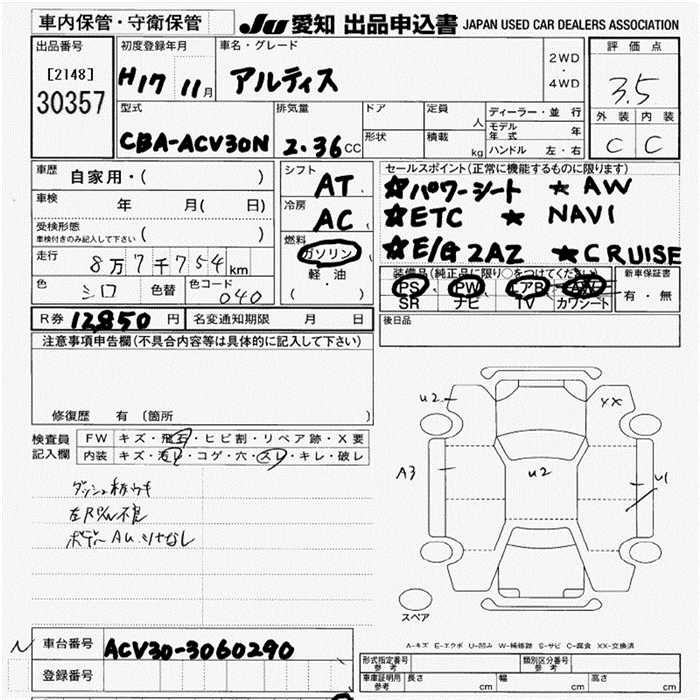 車内保管・守衛保管
JU 愛知 出品申込書 JAPAN USED CAR DEALERS ASSOCIATION
出品番号
[2148]
30357
初度登録年月
H17 11月
車名・グレード
アルティス
2WD
・
4WD
評価点
3.5
外装 内装
C C
型式
CBA-ACV30N
排気量
2.36cc
ドア
形状
定員
人
積載
kg
ディーラー・並行
モデル年式 年
ハンドル 左・右
車歴 自家用・( )
車検 年 月( 日)
受検形態
車検付きのみ記入して下さい ( )
走行
8万7千754km
色 シロ 色替 色コード 040
シフト
AT
冷房
AC
燃料
ガソリン
軽・油
( )
セールスポイント(正常に機能するものに限ります)
☆パワーシート ★AW
☆ETC ★ NAVI
☆E/G 2AZ ★CRUISE
装備品(純正品に限り○をつけてください)
PS PW エアB AW
SR ナビ TV カワシート
新車保証書
有・無
R券 12,850 円 名変通知期限 月 日
後日品
注意事項申告欄(不具合内容等は具体的に記入して下さい)
修復歴 有 (箇所 )
検査員
記入欄
FW キズ・飛石・ヒビ割・リペア跡・X要
内装 キズ・汚レ・コゲ・穴・スレ・キレ・破レ
左R
ボデー AU
U2
XX
A3
U2
U1
スペア
A-キズ E-エクボ U-凹み W-補修跡 S-サビ C-腐食 XX-交換済
N
車台番号 ACV30-3060290
登録番号
形式指定番号
参考
類別区分番号
参考
車庫証明用
参考
長さ cm 幅 cm 高さ cm